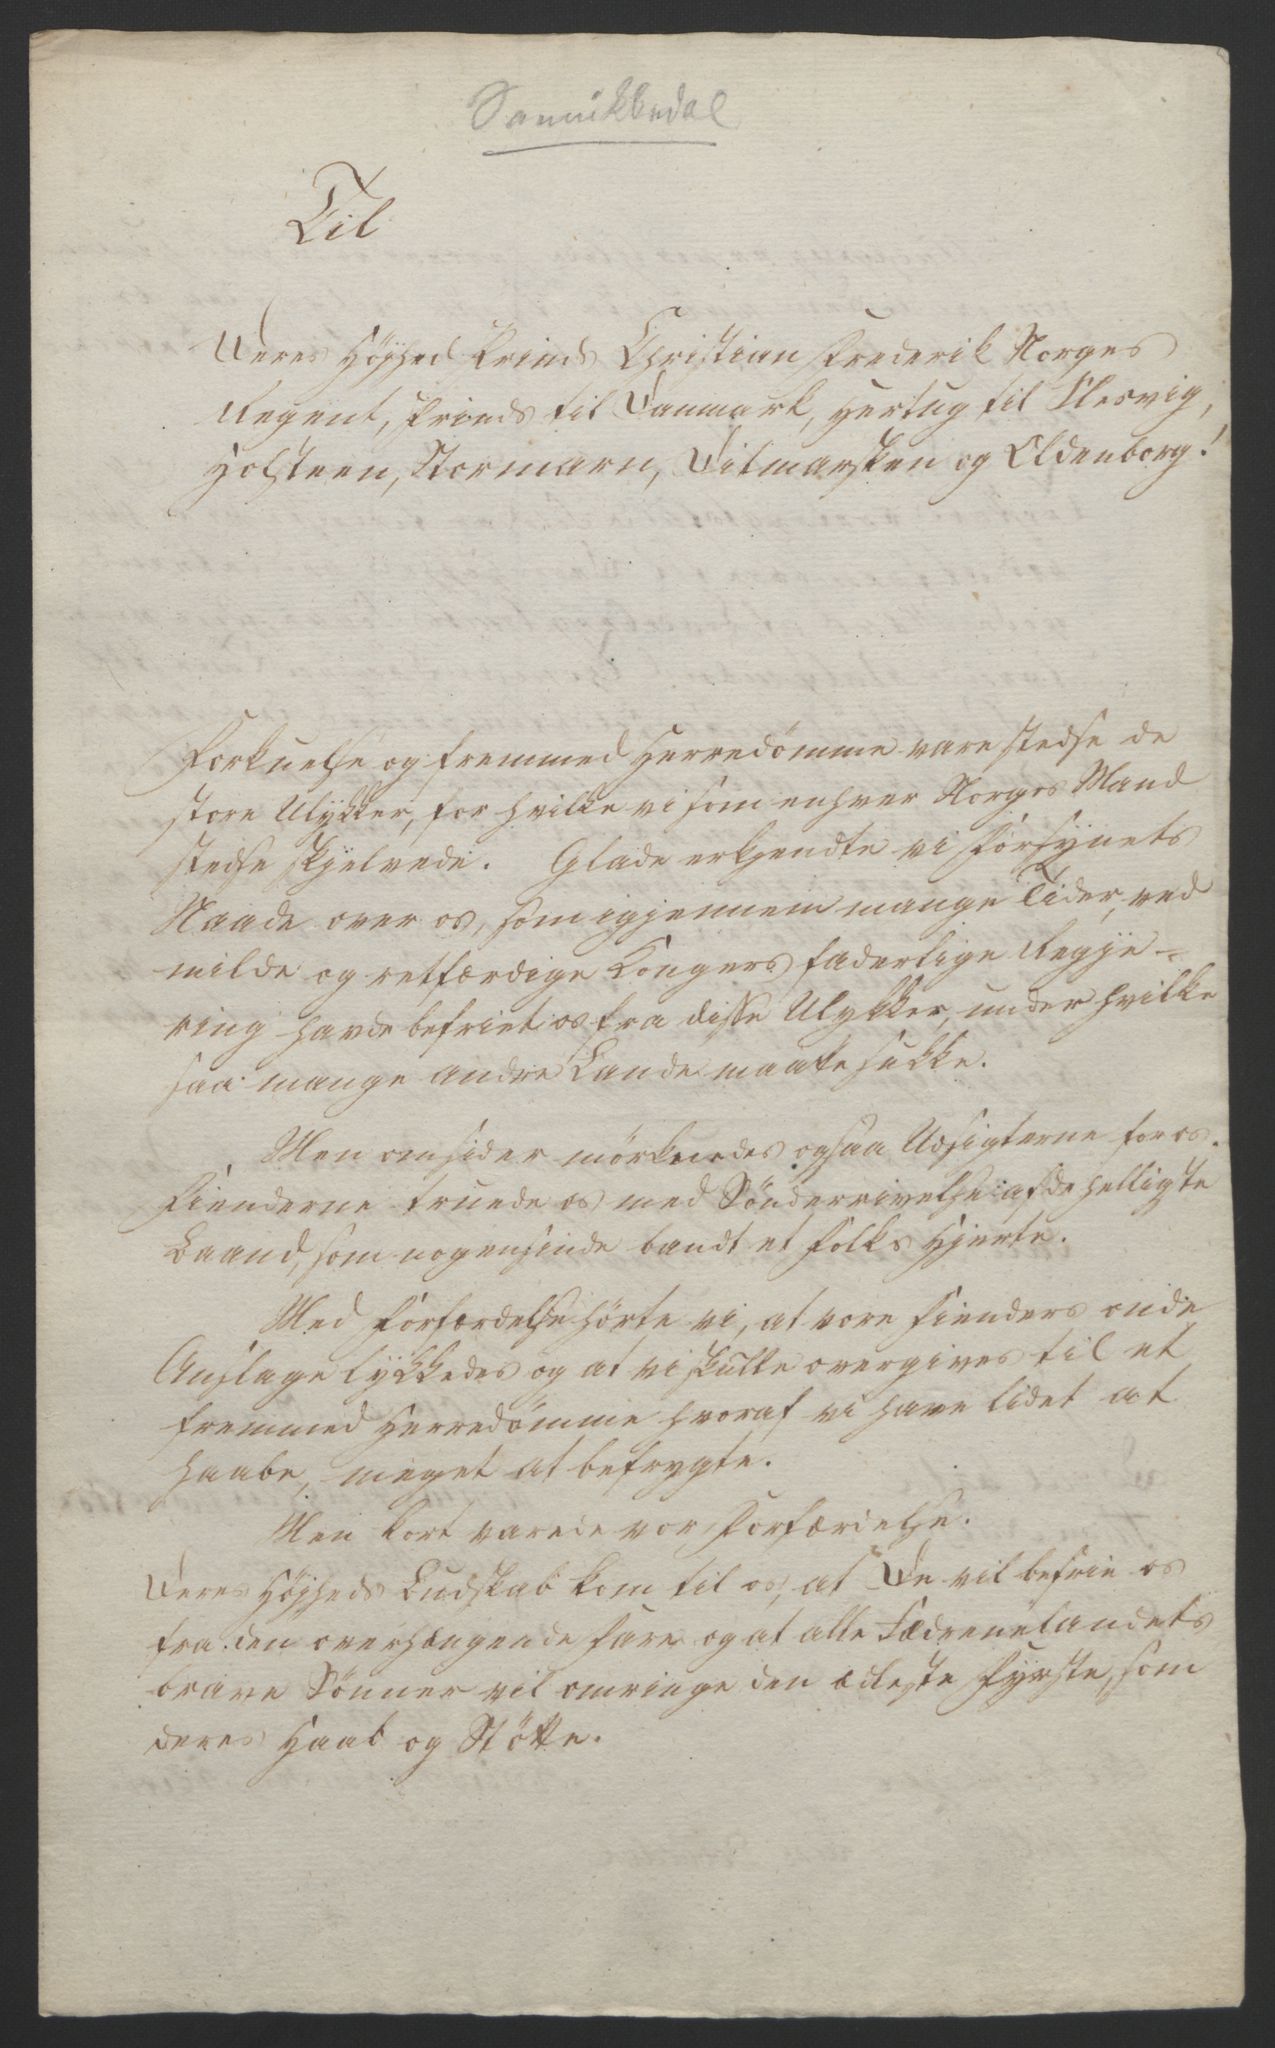 Sannikedal
Til
Deres Höÿhed Prinds Christian Frederik Norges
Regent, Prinds til Danmark, Hertug til Slesvig,
Holsteen, Stormarn, Ditmarsken og Oldenborg!
Forkuelse og fremmed Herredömme vare stedse de
store Ulÿkker, for hvilke vi som enhver Norges Mand
stedse skjelvede. Glade erkjendte vi Forsÿnets
Naade over os, som igjennem mange Tider, ved
milde og retfærdige Kongers faderlige Regje-
ring havde befriet os fra disse Ulykker, under hvilke
saa mange andre Lande maatte sukke.
Men omsider mörknedes ogsaa Udsigterne for os.
Fienderne truede os med Sönderrivelse af de helligste
Baand, som nogensinde bandt et Folks Hjerte.
Med Forfærdelse hörte vi, at vore Fienders onde
Anslage lÿkkedes og at vi skulle overgives til et
fremmed Herredömme hvoraf vi have lidet at
haabe, meget at befrygte.
Men kort varede vor Forfærdelse.
Deres Höjheds Budskab kom til os, at De vil befrie os
fra den overhængende Fare og at alle Fædrenelandets
brave Sönner vil omringe den ædleste Fyrste, som
deres Haab og Stötte.